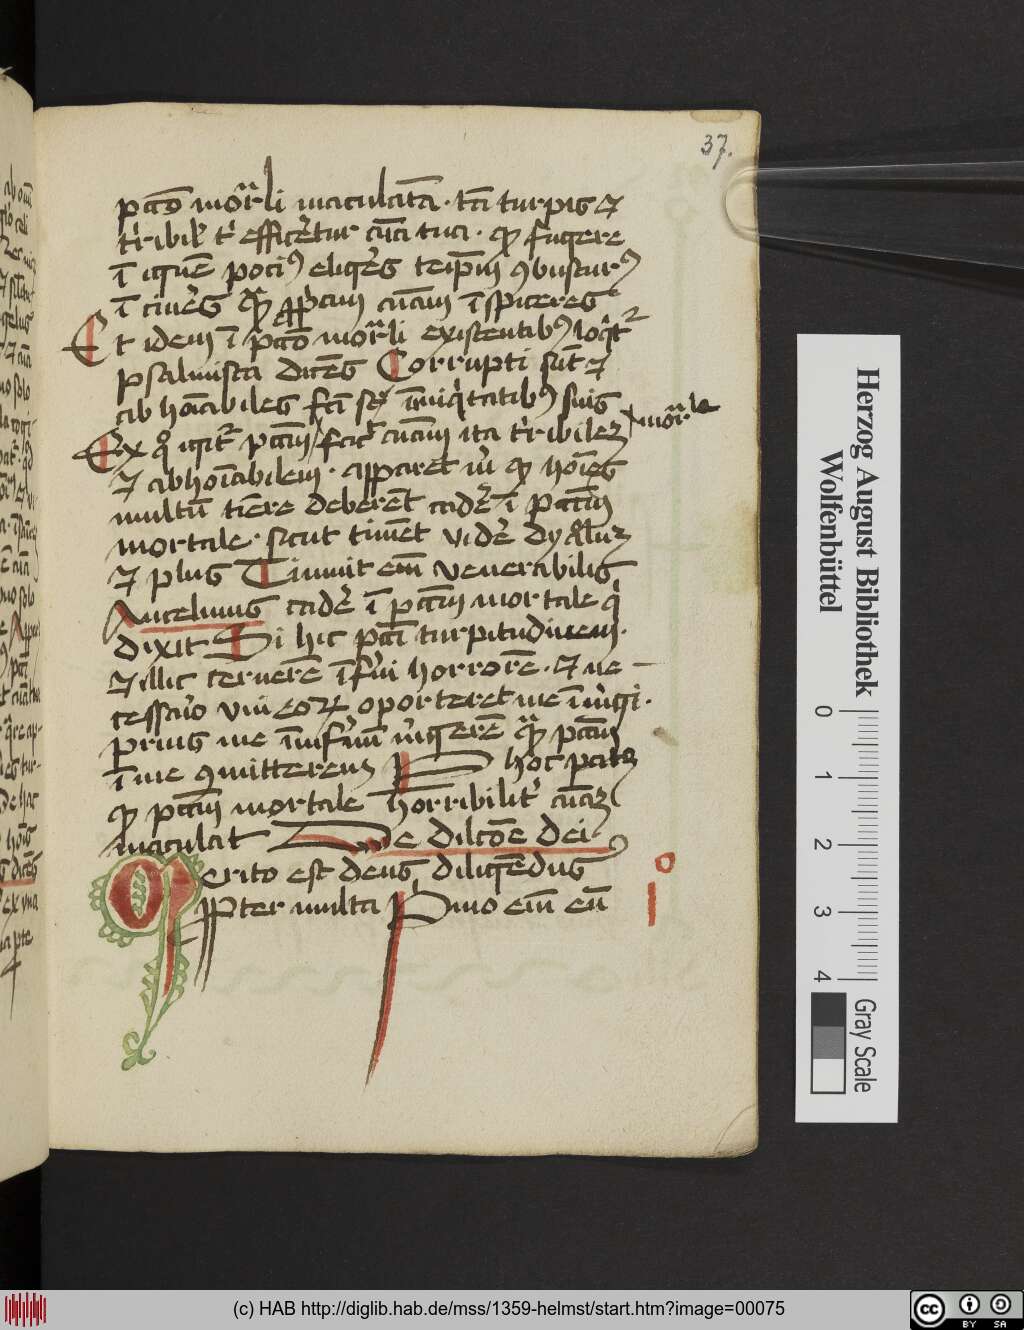 37.
pctō mor̄li maculatā. tā turpis ⁊
t'ribil' t' effic'etur aīa tua. qꝫ fugere
ī ignē poci⁹ elig'es teip̄m ꝯbustur⁹
ī cin'es qᵃꝫ ꝓp̄am aīam īspiceres
Et idem ī pctō mor̄li existentib⁹ loqⁱt²
psalmista dicēs Corrupti sūt ⁊
abhoīabiles fcī sꝫ ī iniqⁱtatib⁹ suis
Ex qº igit² pctm̄ facit aīam ita t'ribilem
mor̄le
⁊ abhoīabilem. apparet n̄ qꝫ hoīes
multū tīere deberēt cad'e ī pctm̄
mortale. sicut timēt vid'e dyabl'm
⁊ plus Timuit em̄ venerabilis
Ancelmus cad'e ī pctm̄ mortale qⁱ
dixit Si hic pctī turpitudinem.
⁊ illic cernerē īf'ni horrorē. ⁊ ne
cessa'o vni eoꝝ oporteret me īm'gi.
prius me īnf'nū īm'gerē qᵃꝫ pctm̄
ī me ꝯmitterem P hoc patꝫ
qꝫ pctm̄ mortale horribilit' aīaꝫ
maculat De dilcōe dei
Merito est deus diligēdus
ꝓpter multa Pimo em̄ eū
10
Herzog August Bibliothek
Wolfenbüttel
0 1 2 3 4
Gray Scale
(c) HAB http://diglib.hab.de/mss/1359-helmst/start.htm?image=00075
cc BY SA